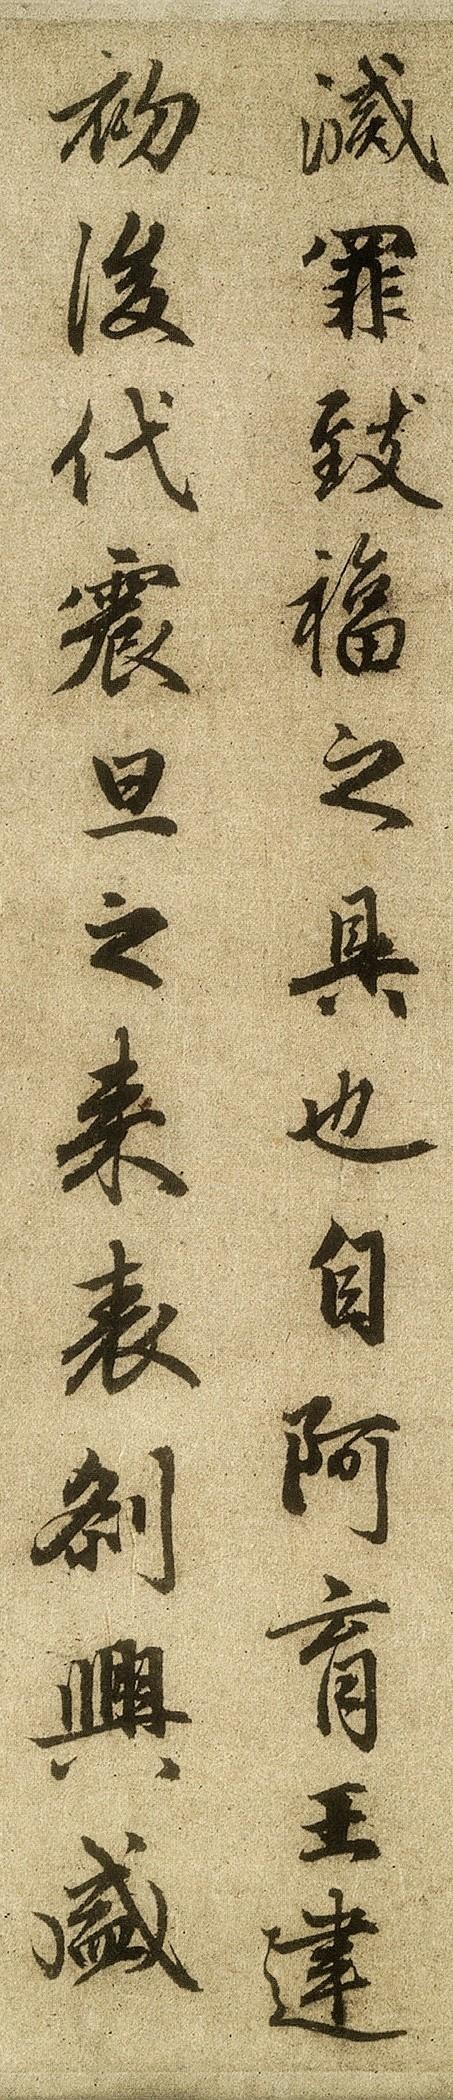 滅罪致福之具也自阿育王建
初後代震旦之来表剎興盛